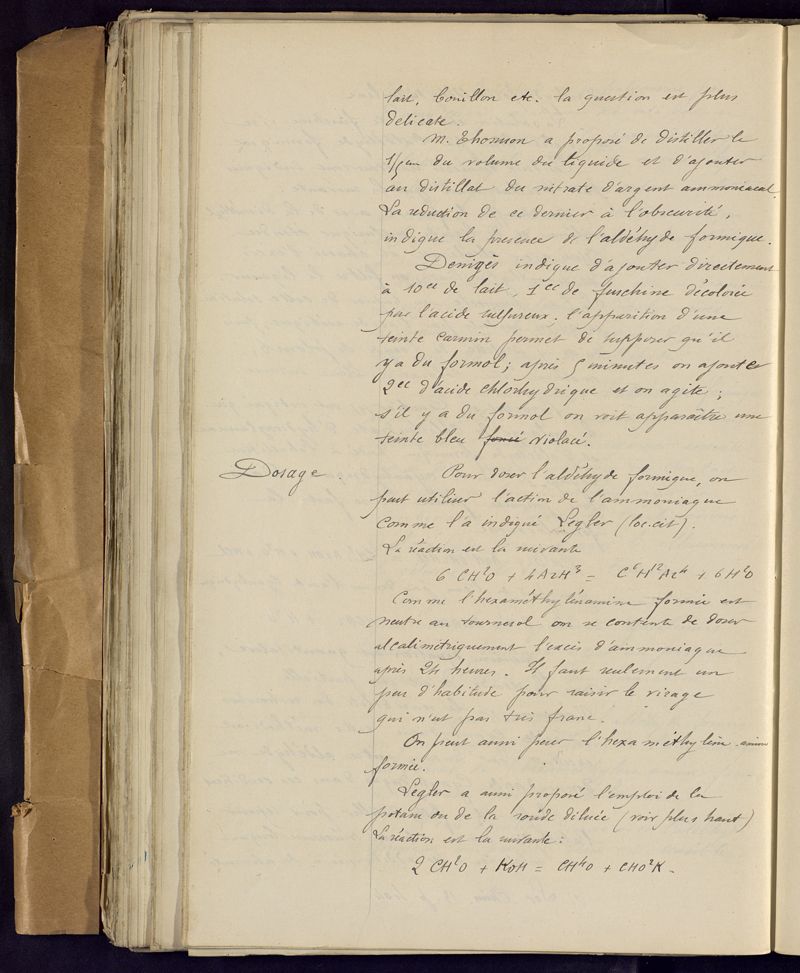 lait, bouillon etc. la question est plus
délicate.
M. Thomson a proposé de distiller le
1/5eme du volume du liquide et d'ajouter
au distillat du nitrate d'argent ammoniacal.
La réduction de ce dernier à l'obscurité,
indique la présence de l'aldéhyde formique.
Denigès indique d'ajouter directement
à 10cc de lait, 1cc de fuschine décolorée
par l'acide sulfureux; l'apparition d'une
teinte carmin permet de supposer qu'il
y a du formol; après 5 minutes on ajoute
2cc d'acide chlorhydrique et on agite;
s'il y a du formol on voit apparaître une
teinte bleu foncé violacé.
Dosage.
Pour doser l'aldéhyde formique, on
peut utiliser l'action de l'ammoniaque
comme l'a indiqué Legler (loc. cit).
La réaction est la suivante
6 CH²O + 4AzH³ = C⁶H¹²Az⁴ + 6H²O
Comme l'hexaméthylénamine formée est
neutre au tournesol on se contente de doser
alcalimétriquement l'excès d'ammoniaque
après 24 heures. Il faut seulement un
peu d'habitude pour saisir le virage
qui n'est pas très franc.
On peut aussi peser l'hexaméthylène-amine
formée.
Legler a aussi proposé l'emploi de la
potasse ou de la soude diluée (voir plus haut)
La réaction est la suivante:
2 CH²O + KOH = CH⁴O + CHO²K.